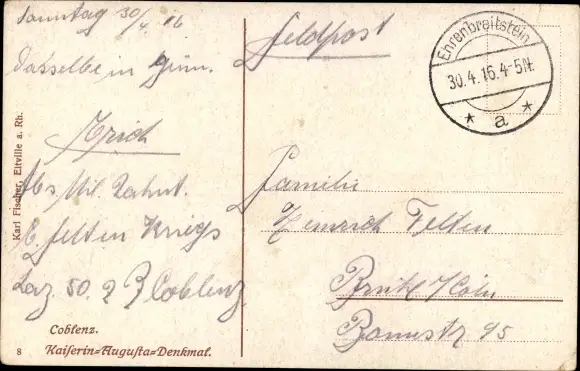 Sonntag 30/4 16
Dasselbe in Grün.
Erich
Abs. Mil. Zahnt.
E. Felten Kriegs
Laz. 50. Coblenz
Coblenz.
8 Kaiserin-Augusta-Denkmal.
Karl Fischer, Eltville a. Rh.
Feldpost
Ehrenbreitstein
30.4.16.4-5N.
* a *
Familie
Heinrich Felten
Brühl /Köln
95